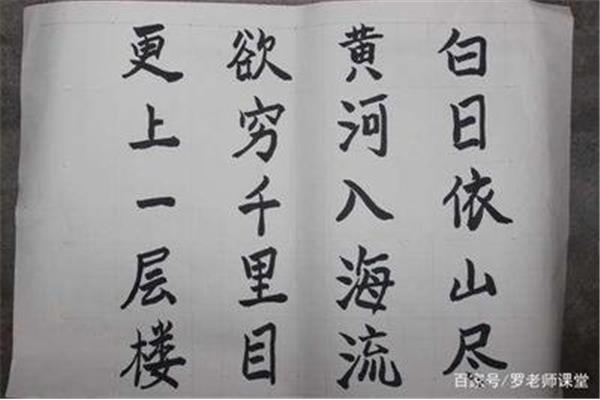 白日依山尽
黄河入海流
欲穷千里目
更上一层楼
百家号/罗老师课堂